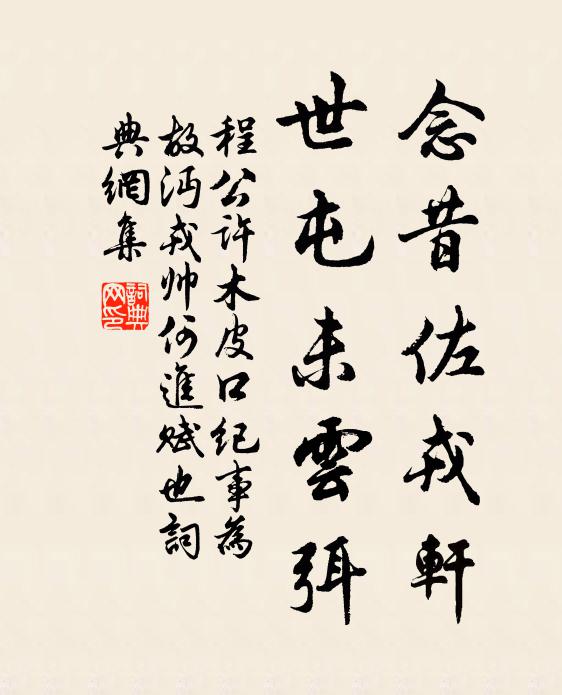 念昔佐戎軒
世屯未雲弭
程公許木皮口紀事為
故沔戎帥何進賦也詞
典網集
詞典网印